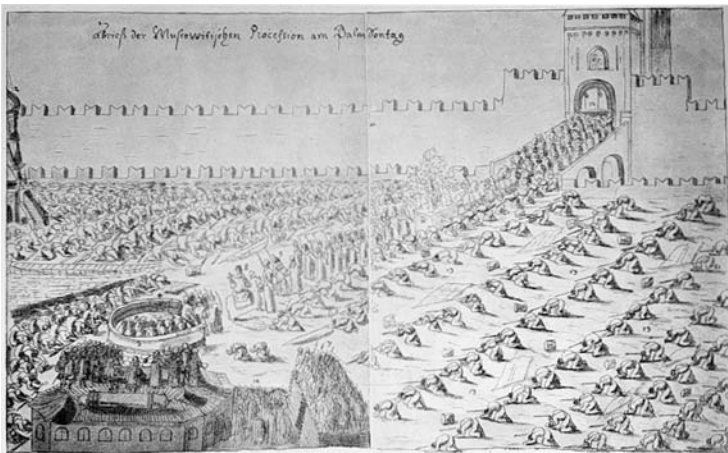 abrieß der Muscowitischen Procession am Palm Sontag